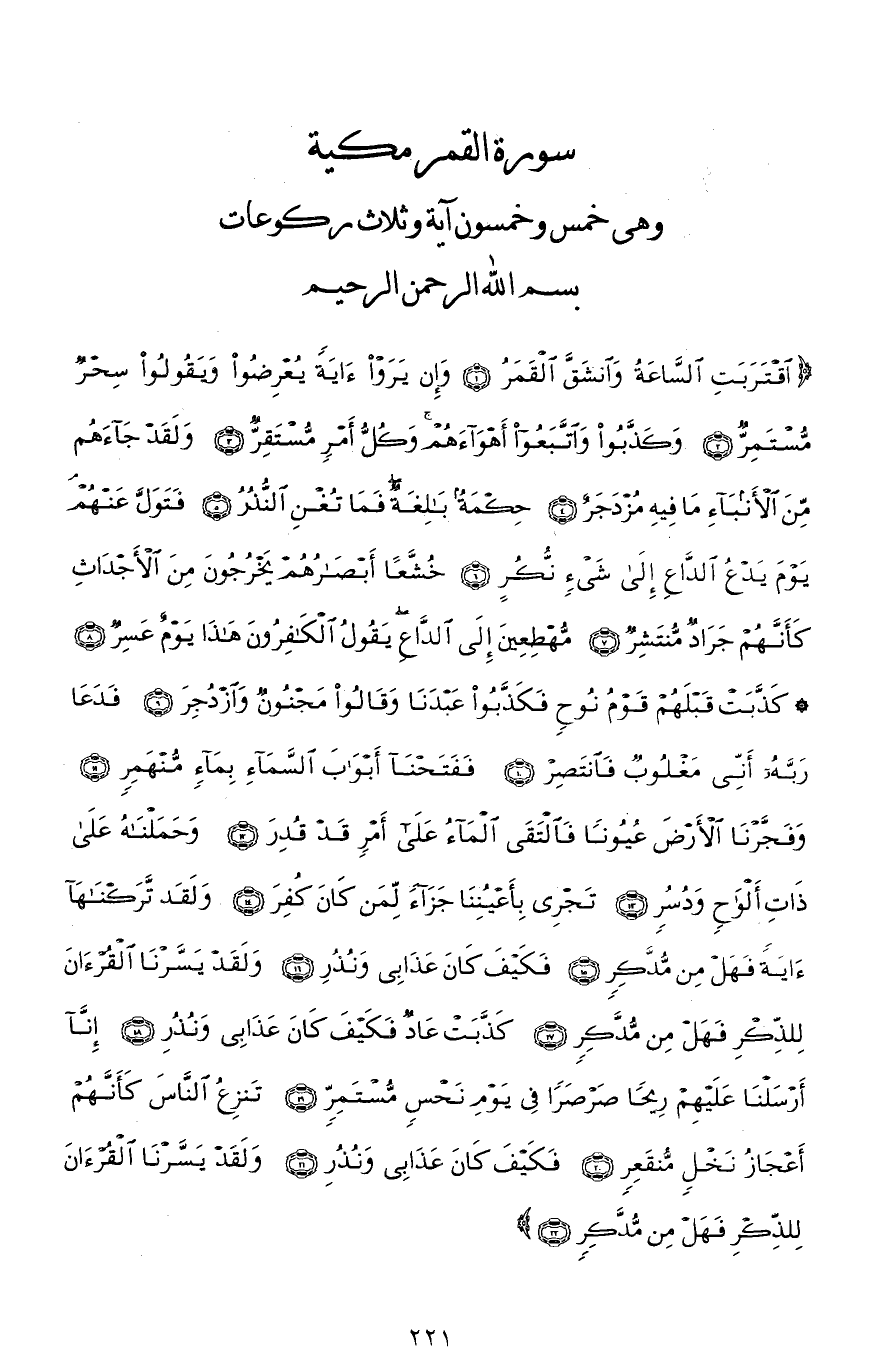 سورة القمر مكية
وهى خمس وخمسون آية وثلاث ركوعات
بسم الله الرحمن الرحيم
﴿ ٱقْتَرَبَتِ ٱلسَّاعَةُ وَٱنشَقَّ ٱلْقَمَرُ ۝١ وَإِن يَرَوْا۟ ءَايَةً يُعْرِضُوا۟ وَيَقُولُوا۟ سِحْرٌ
مُّسْتَمِرٌّ ۝٢ وَكَذَّبُوا۟ وَٱتَّبَعُوٓا۟ أَهْوَآءَهُمْ ۚ وَكُلُّ أَمْرٍ مُّسْتَقِرٌّ ۝٣ وَلَقَدْ جَآءَهُم
مِّنَ ٱلْأَنۢبَآءِ مَا فِيهِ مُزْدَجَرٌ ۝٤ حِكْمَةٌۢ بَـٰلِغَةٌ ۖ فَمَا تُغْنِ ٱلنُّذُرُ ۝٥ فَتَوَلَّ عَنْهُمْ ۘ
يَوْمَ يَدْعُ ٱلدَّاعِ إِلَىٰ شَىْءٍ نُّكُرٍ ۝٦ خُشَّعًا أَبْصَـٰرُهُمْ يَخْرُجُونَ مِنَ ٱلْأَجْدَاثِ
كَأَنَّهُمْ جَرَادٌ مُّنتَشِرٌ ۝٧ مُّهْطِعِينَ إِلَى ٱلدَّاعِ ۖ يَقُولُ ٱلْكَـٰفِرُونَ هَـٰذَا يَوْمٌ عَسِرٌ ۝٨
۞ كَذَّبَتْ قَبْلَهُمْ قَوْمُ نُوحٍ فَكَذَّبُوا۟ عَبْدَنَا وَقَالُوا۟ مَجْنُونٌ وَٱزْدُجِرَ ۝٩ فَدَعَا
رَبَّهُۥٓ أَنِّى مَغْلُوبٌ فَٱنتَصِرْ ۝١٠ فَفَتَحْنَآ أَبْوَٰبَ ٱلسَّمَآءِ بِمَآءٍ مُّنْهَمِرٍ ۝١١
وَفَجَّرْنَا ٱلْأَرْضَ عُيُونًا فَٱلْتَقَى ٱلْمَآءُ عَلَىٰٓ أَمْرٍ قَدْ قُدِرَ ۝١٢ وَحَمَلْنَـٰهُ عَلَىٰ
ذَاتِ أَلْوَٰحٍ وَدُسُرٍ ۝١٣ تَجْرِى بِأَعْيُنِنَا جَزَآءً لِّمَن كَانَ كُفِرَ ۝١٤ وَلَقَد تَّرَكْنَـٰهَآ
ءَايَةً فَهَلْ مِن مُّدَّكِرٍ ۝١٥ فَكَيْفَ كَانَ عَذَابِى وَنُذُرِ ۝١٦ وَلَقَدْ يَسَّرْنَا ٱلْقُرْءَانَ
لِلذِّكْرِ فَهَلْ مِن مُّدَّكِرٍ ۝١٧ كَذَّبَتْ عَادٌ فَكَيْفَ كَانَ عَذَابِى وَنُذُرِ ۝١٨ إِنَّآ
أَرْسَلْنَا عَلَيْهِمْ رِيحًا صَرْصَرًا فِى يَوْمِ نَحْسٍ مُّسْتَمِرٍّ ۝١٩ تَنزِعُ ٱلنَّاسَ كَأَنَّهُمْ
أَعْجَازُ نَخْلٍ مُّنقَعِرٍ ۝٢٠ فَكَيْفَ كَانَ عَذَابِى وَنُذُرِ ۝٢١ وَلَقَدْ يَسَّرْنَا ٱلْقُرْءَانَ
لِلذِّكْرِ فَهَلْ مِن مُّدَّكِرٍ ۝٢٢ ﴾
٢٢١